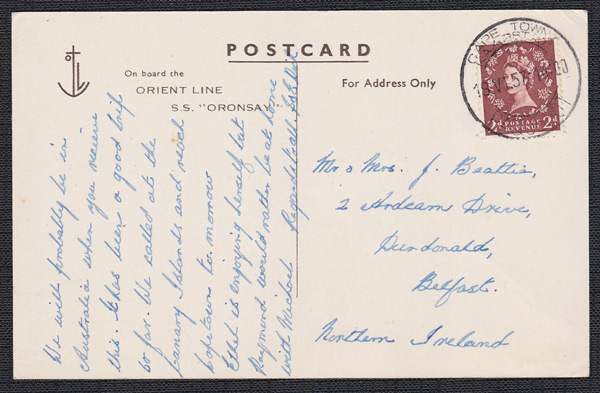 POSTCARD
On board the
ORIENT LINE
S.S. "ORONSAY"
For Address Only
CAPE TOWN
2d POSTAGE 2d
REVENUE
We will probably be in
Australia when you receive
this. It has been a good trip
so far. We called at the
Canary Islands and reach
Capetown to-morrow
Ethel is enjoying herself but
Raymond would rather be at home
with Michael. Regards to all
Mr & Mrs. J. Beattie,
2 Ardcarn Drive,
Dundonald,
Belfast.
Northern Ireland